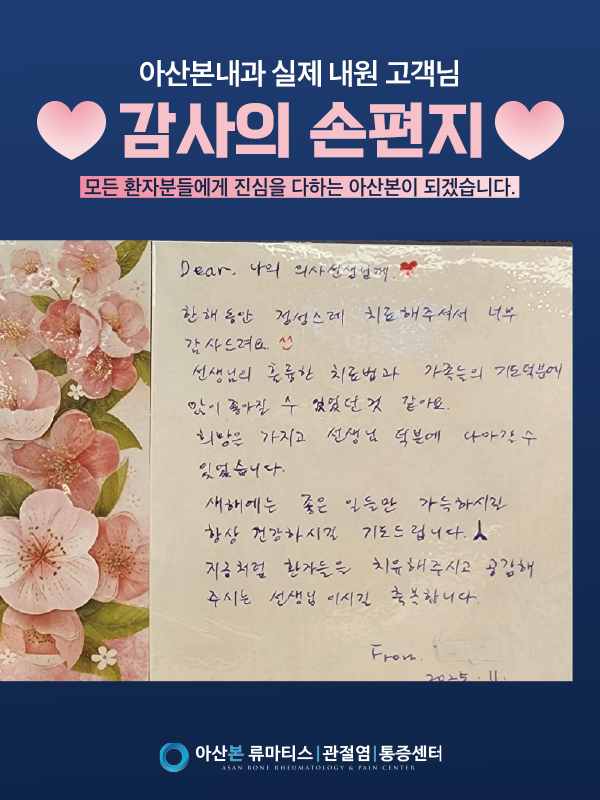 아산본내과 실제 내원 고객님
감사의 손편지
모든 환자분들에게 진심을 다하는 아산본이 되겠습니다.
Dear. 나의 의사선생님께.
한해동안 정성스레 치료해주셔서 너무
감사드려요.
선생님의 훌륭한 치료법과 가족들의 기도덕분에
많이 좋아질 수 있었던것 같아요.
희망은 가지고 선생님 덕분에 나아갈 수
있었습니다.
새해에는 좋은 일들만 가득하시길
항상 건강하시길 기도드립니다.
지금처럼 환자들을 치유해주시고 공감해
주시는 선생님이시길 축복합니다.
From.
2025. 11.
아산본 류마티스|관절염|통증센터
ASAN BONE RHEUMATOLOGY & PAIN CENTER